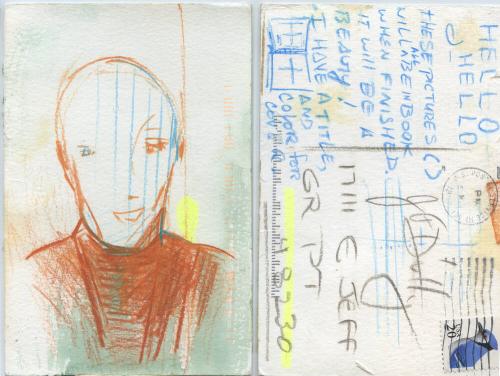 HELLO
HELLO
THESE PICTURES ()
WILL ALL BE IN BOOK
WHEN FINISHED.
IT WILL BE A
BEAUTY!
I HAVE A TITLE,
AND
COLOR FOR
17111 E. JEFF
GR PT
48230
USA
20